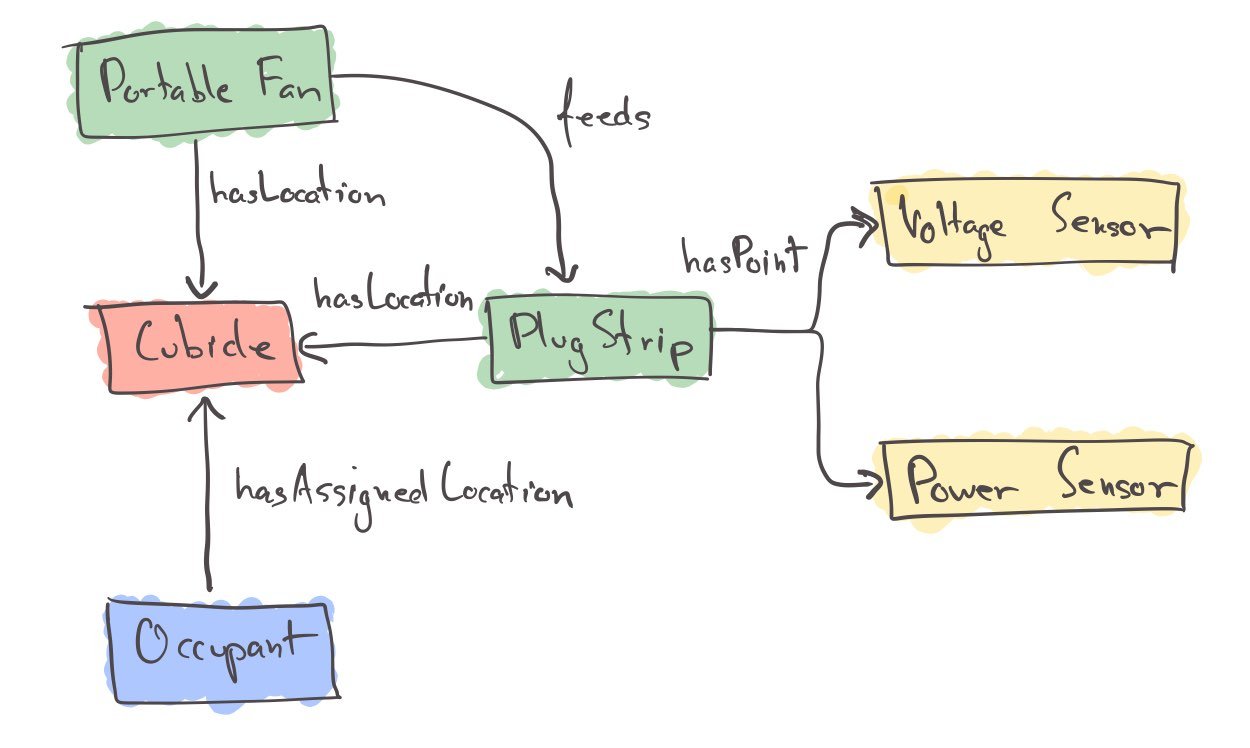 Portable Fan
feeds
hasLocation
Voltage Sensor
hasPoint
hasLocation
Cubicle
PlugStrip
Power Sensor
hasAssignedLocation
Occupant